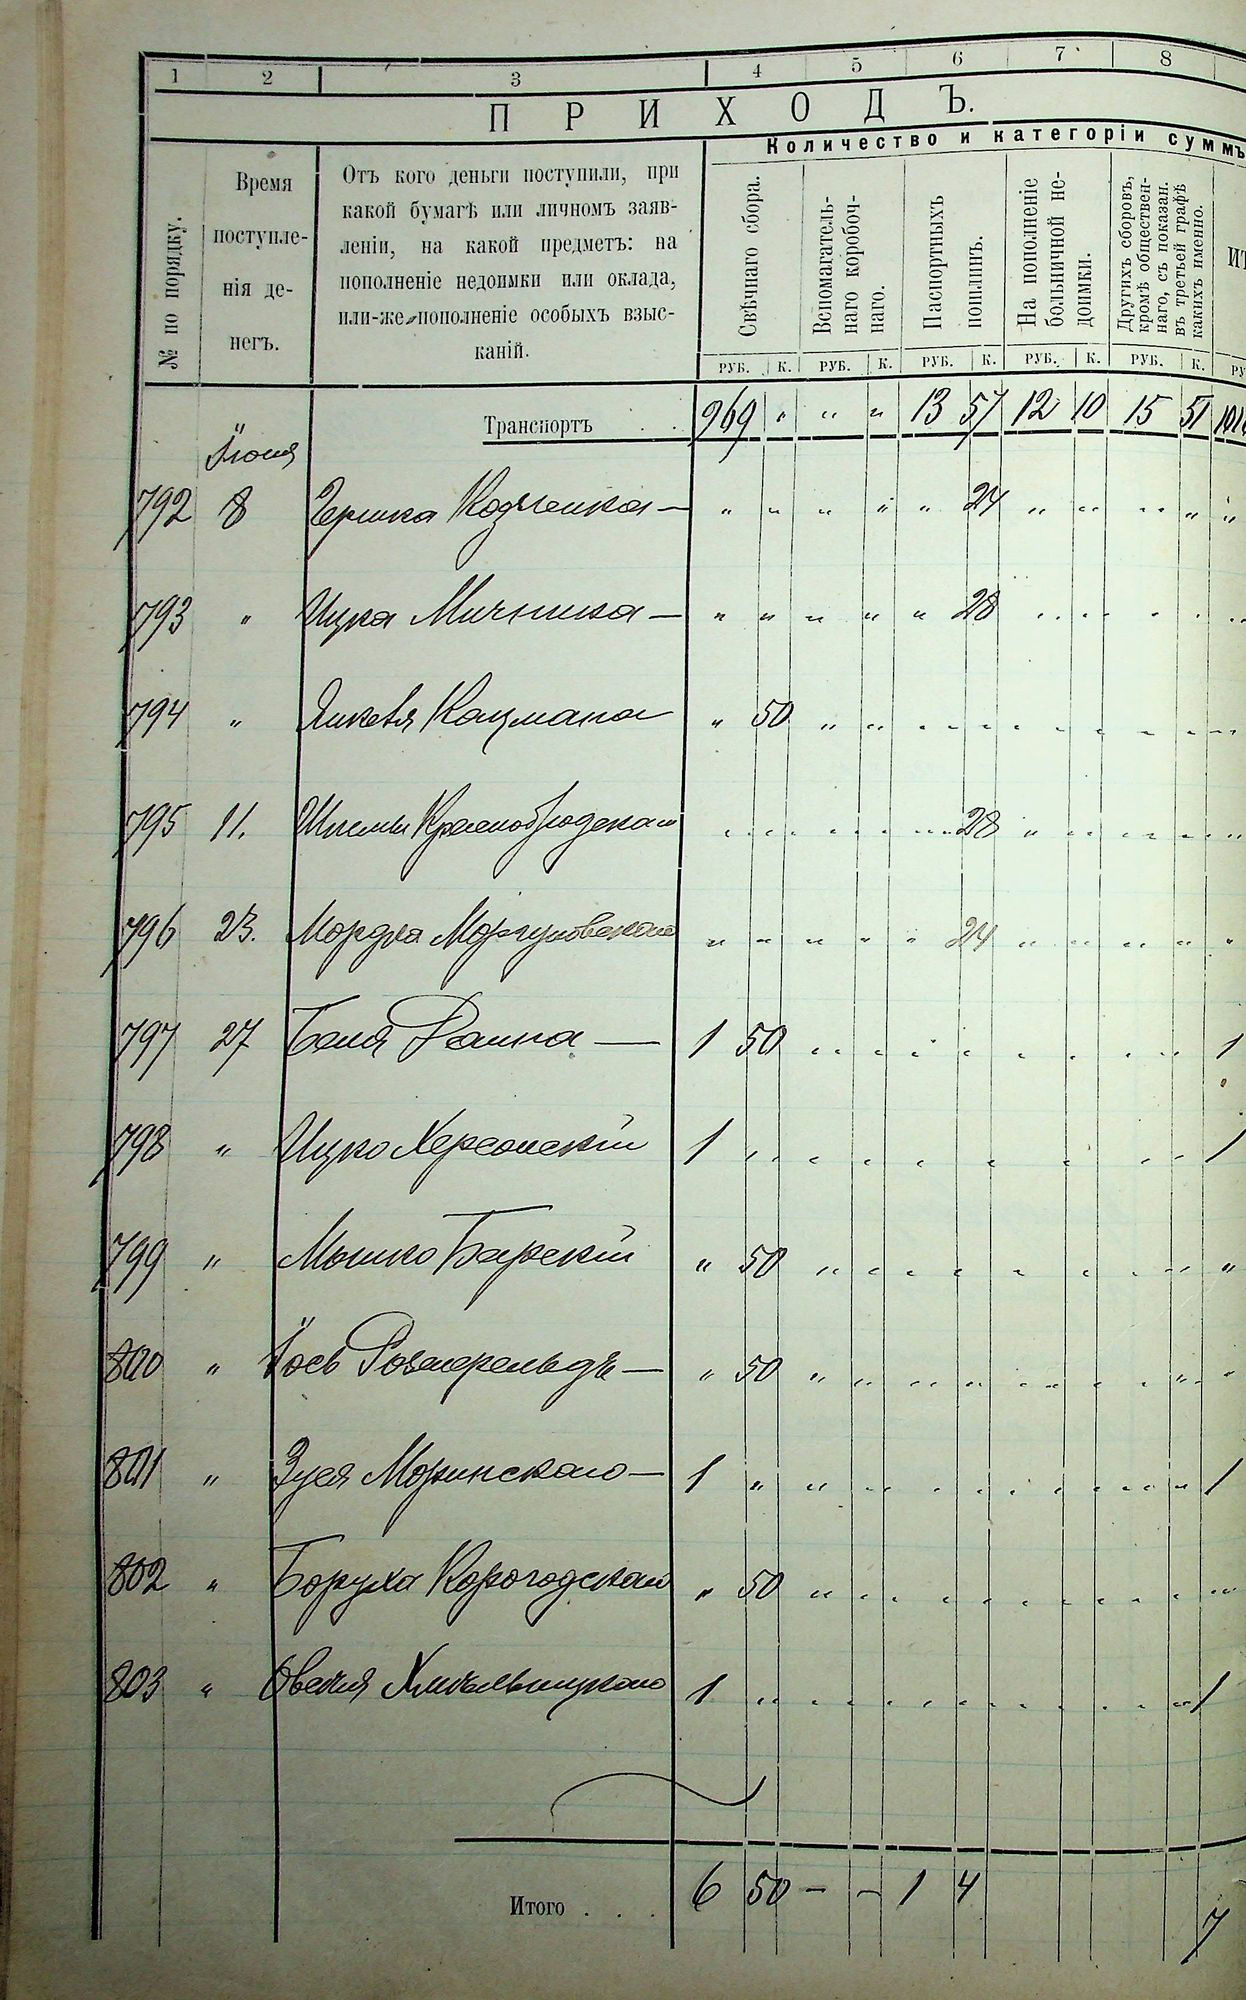 1 2 3 4 5 6 7 8
ПРИХОДЪ.
Количество и категоріи суммъ
№ по порядку.
Время
поступле-
нія де-
негъ.
Отъ кого деньги поступили, при
какой бумагѣ или личномъ заяв-
леніи, на какой предметъ: на
пополненіе недоимки или оклада,
или-же пополненіе особыхъ взыс-
каній.
Свѣчнаго сбора.
Вспомагатель-
наго коробоч-
наго.
Паспортныхъ
пошлинъ.
На пополненіе
больничной не-
доимки.
Другихъ сборовъ,
кромѣ обществен-
наго, съ показан.
въ третьей графѣ
какихъ именно.
РУБ. К. РУБ. К. РУБ. К. РУБ. К. РУБ. К.
Транспортъ . . 969 " " " 13 57 12 10 15 51
Іюня
792 8 Гершка Козченка — " " " " " 24 " " " " "
793 " Ицка Мичника — " " " " " 28
794 " Янкеля Кацмана " 50 " "
795 11. Шлемы 28
796 23. Мордка " " " " " 24 " " " " "
797 27 Беня — 1 50 1
798 " Ицко Херсонскій 1 1
799 " Мошко Барскій " 50 "
800 " Іось — " 50 "
801 " Зуся — 1 " 1
802 " Боруха Корогодскаго " 50
803 " Овсея Хмельницкаго 1 1
Итого . . . 6 50 - - 1 4 7